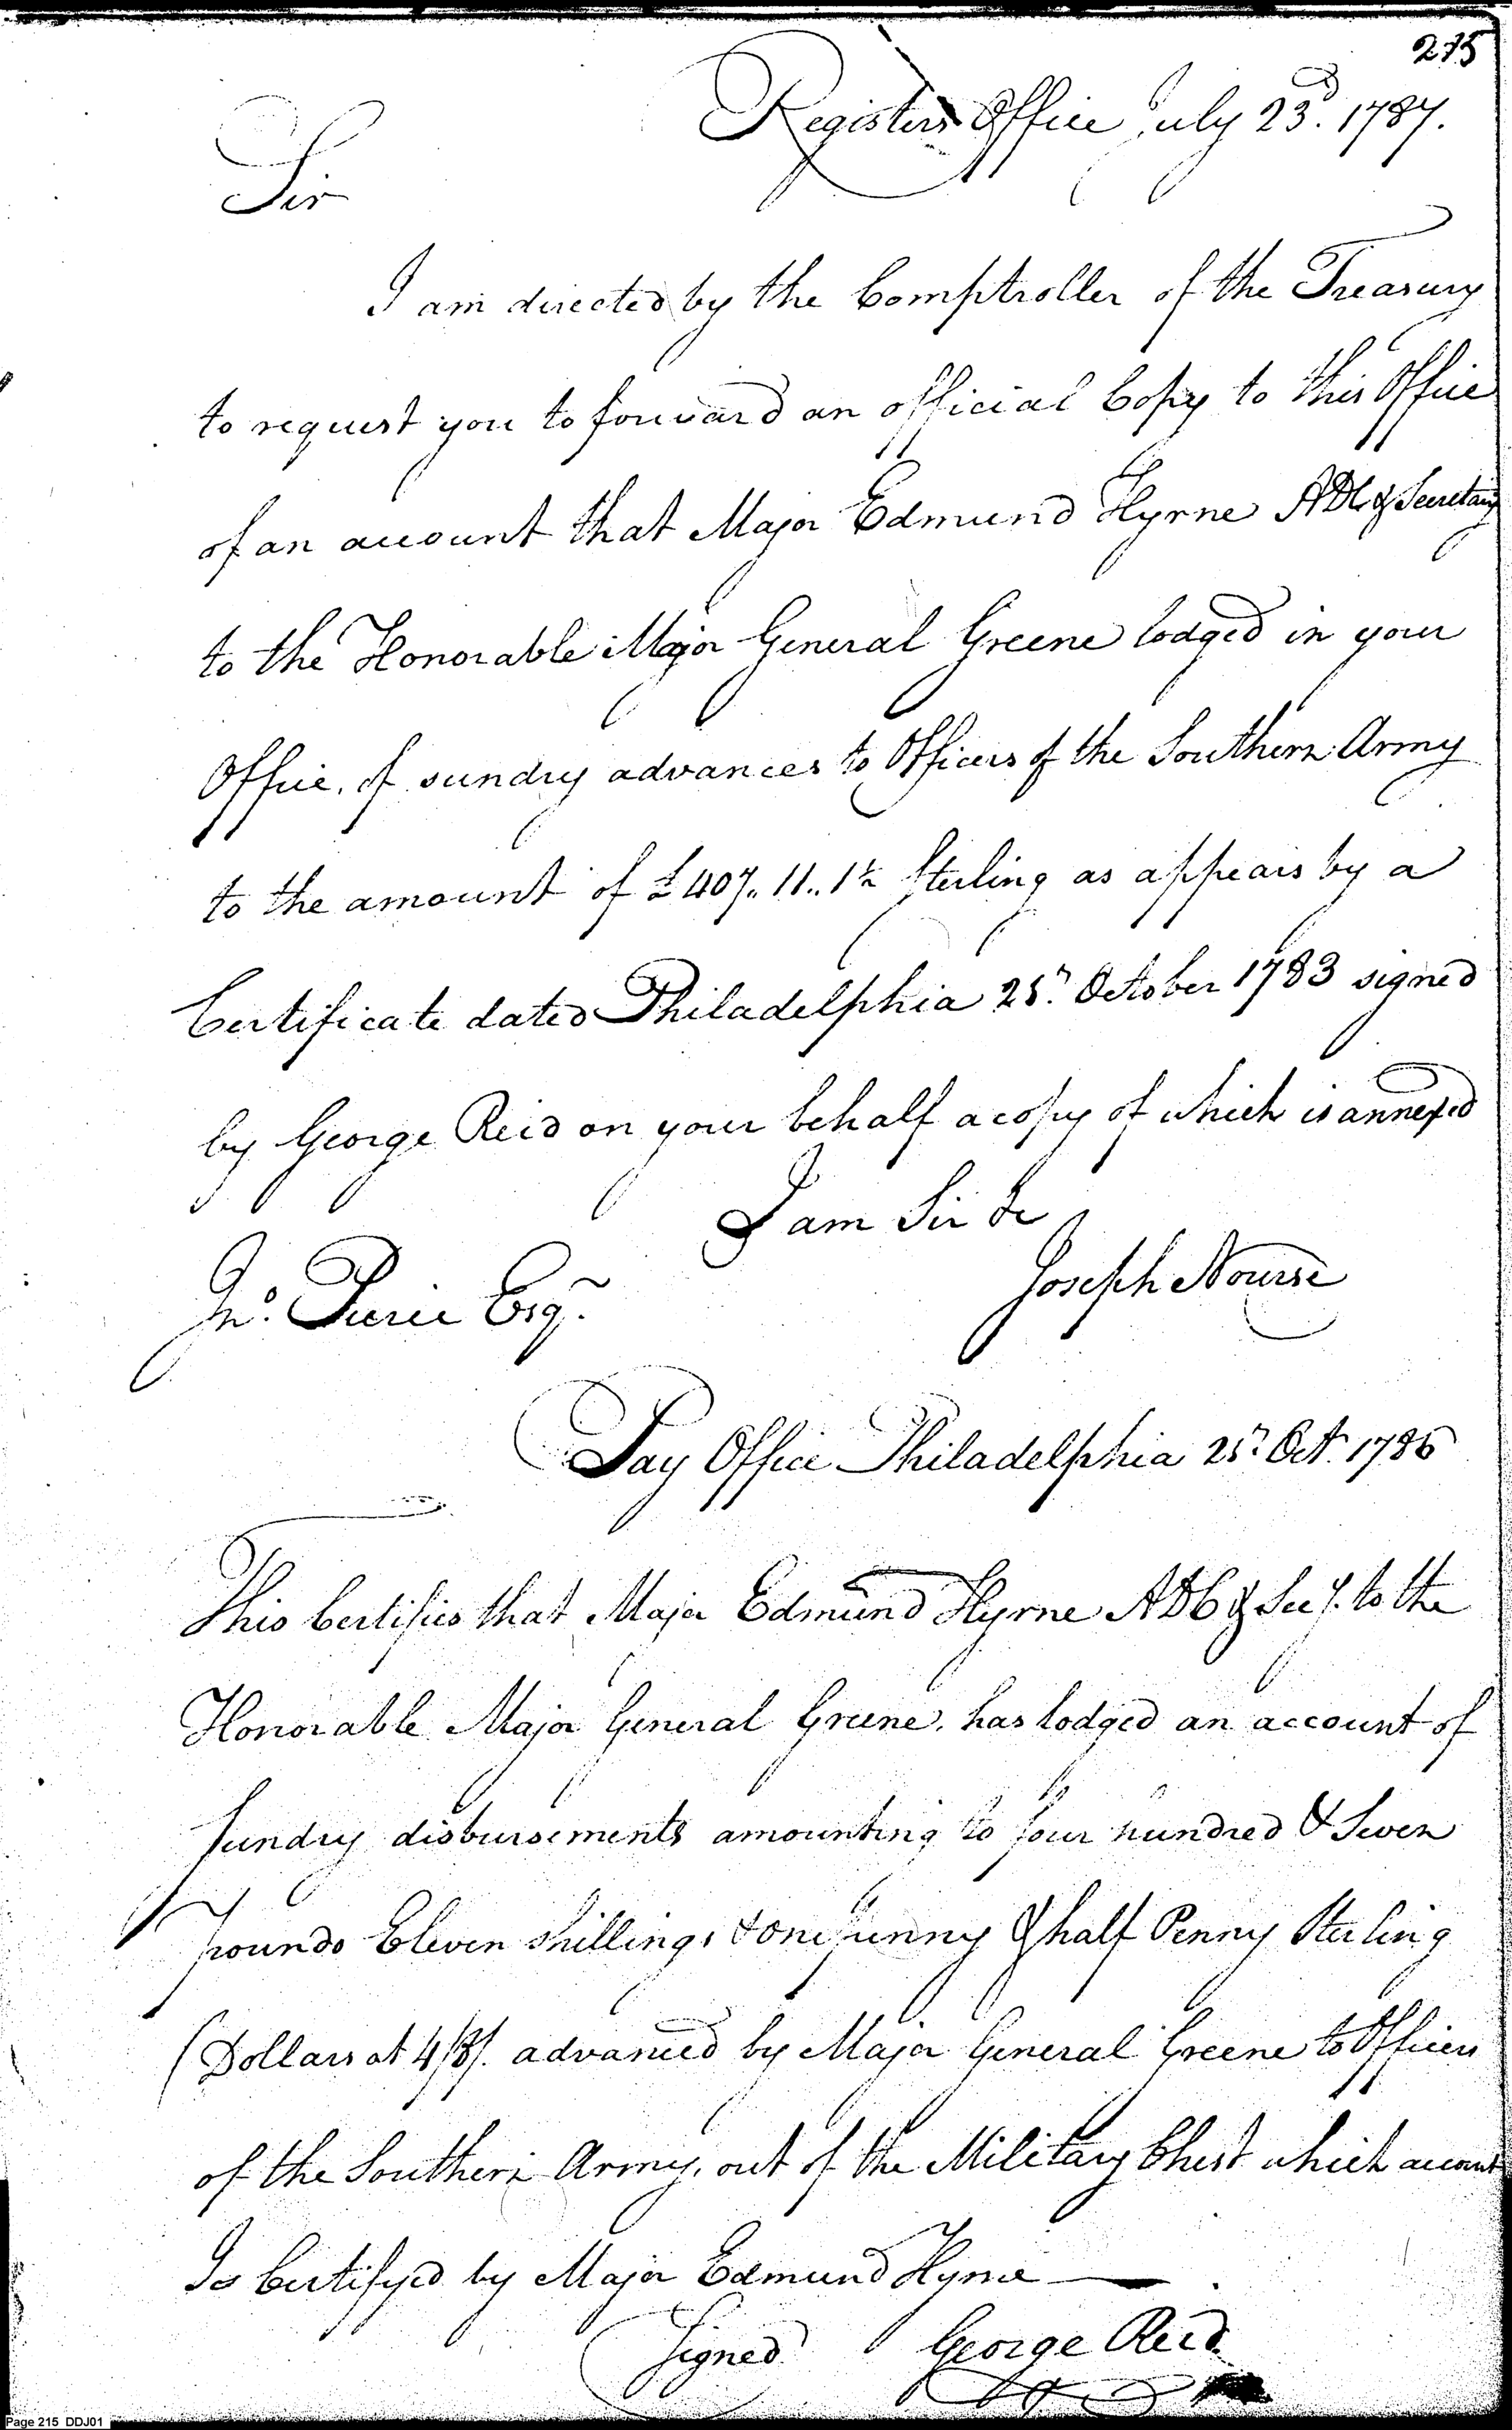 215
Registers Office July 23d. 1787.
Sir
I am directed by the Comptroller of the Treasury
to request you to forward an official Copy to this Office
of an account that Major Edmund Hyrne ADC & Secretary
to the Honorable Major General Greene lodged in your
Office, of sundry advances to Officers of the Southern Army
to the amount of £407..11..1½ Sterling as appears by a
Certificate dated Philadelphia 25th. October 1783 signed
by George Reid on your behalf a copy of which is annexed
I am Sir &c
Joseph Nourse
Jno. Pierce Esqr.
Pay Office Philadelphia 25th Oct. 1786
This Certifies that Major Edmund Hyrne ADC & Secy. to the
Honorable Major General Greene, has lodged an account of
Sundry disbursements amounting to four hundred & Seven
pounds Eleven shillings & one penny & half Penny Sterling
(Dollars at 4/8/. advanced by Major General Greene to Officers
of the Southern Army, out of the Military Chest which account
Is Certifyed by Major Edmund Hyrne
Signed George Reid
Page 215 DDJ01